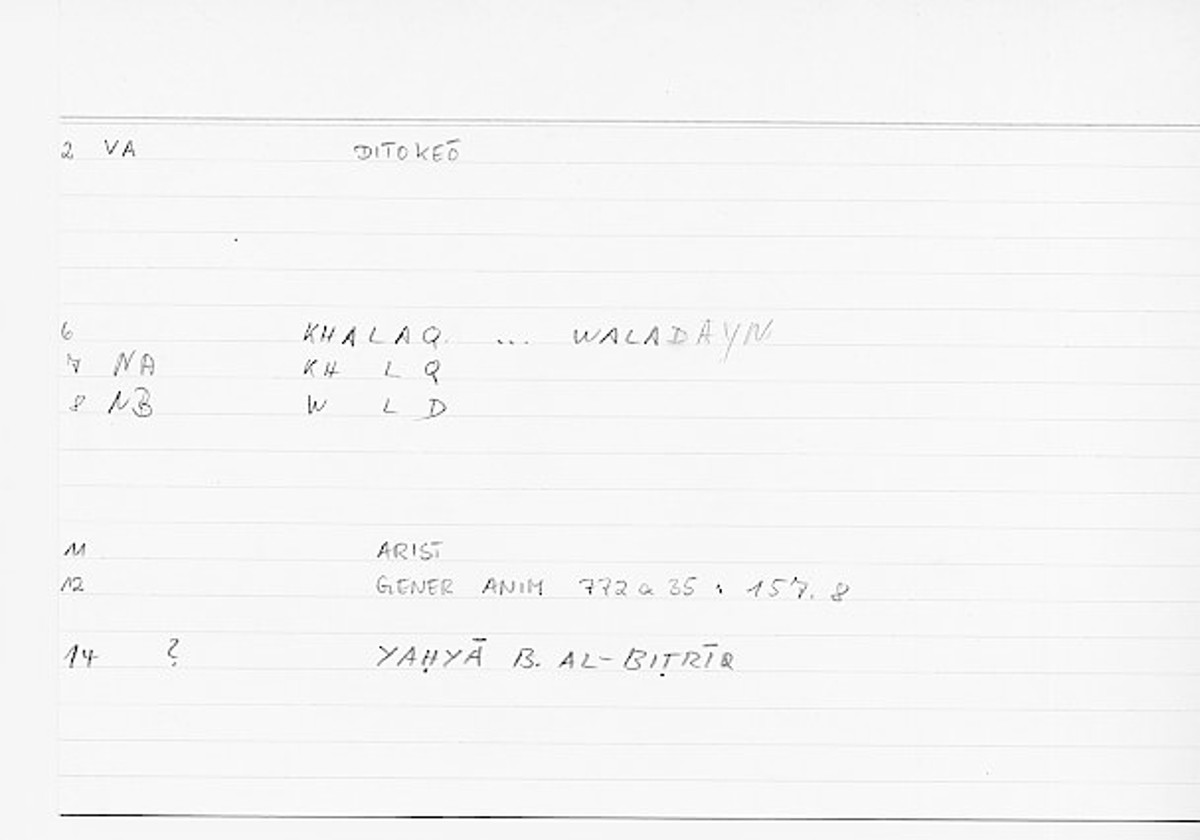 2 VA DITOKEŌ
6 KHALAQ ... WALADAYN
7 NA KH L Q
8 NB W L D
11 ARIST
12 GENER ANIM 772 a 35 : 157. 8
14 ? YAḤYĀ B. AL-BIṬRĪQ